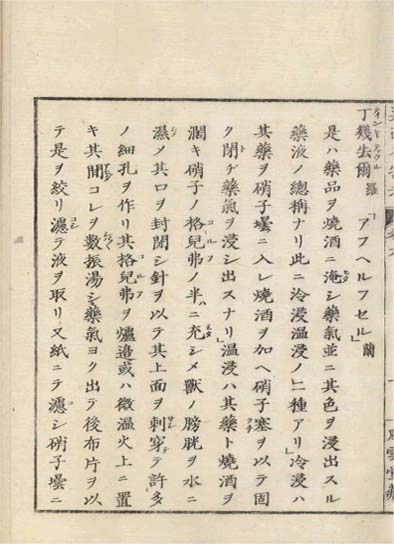 丁幾去爾 羅 「アフヘルフセル」蘭
是ハ藥品ヲ燒酒ニ淹シ藥氣並ニ其色ヲ浸出スル
藥液ノ總稱ナリ此ニ冷浸温浸ノ二種アリ」冷浸ハ
其藥ヲ硝子壜ニ入レ燒酒ヲ加ヘ硝子塞ヲ以テ固
ク閉ヂ藥氣ヲ浸シ出スナリ」温浸ハ其藥ト燒酒ヲ
濶キ硝子ノ格兒弗ノ半ニ充シメ獸ノ膀胱ヲ水ニ
濕メ其口ヲ封閉シ針ヲ以テ其上面ヲ刺穿テ許多
ノ細孔ヲ作リ其格兒弗ヲ爐邉或ハ微温火上ニ置
キ其間コレヲ數振湯シ藥氣ヨク出テ後布片ヲ以
テ是ヲ絞リ濾テ液ヲ取リ又紙ニテ濾シ硝子壜ニ